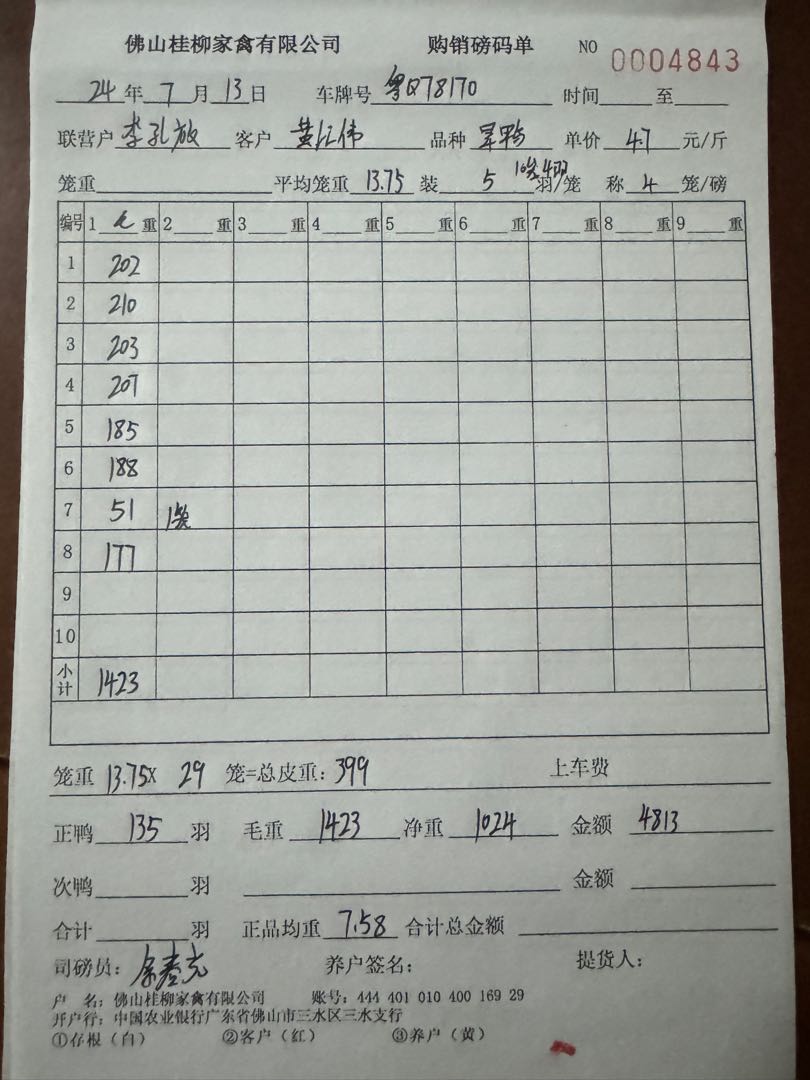 佛山桂柳家禽有限公司 购销磅码单 NO 0004843
24年7月13日 车牌号 粤Q78170 时间 至
联营户 李孔放 客户 黄江伟 品种 旱鸭 单价 4.7 元/斤
笼重 平均笼重 13.75 装 5 10笼4羽 羽/笼 称 4 笼/磅
编号 1 毛 重 2 重 3 重 4 重 5 重 6 重 7 重 8 重 9 重
1 202
2 210
3 203
4 207
5 185
6 188
7 51 1笼
8 177
9
10
小计 1423
笼重 13.75X 29 笼=总皮重: 399 上车费
正鸭 135 羽 毛重 1423 净重 1024 金额 4813
次鸭 羽 金额
合计 羽 正品均重 7.58 合计总金额
司磅员: 养户签名: 提货人:
户 名: 佛山桂柳家禽有限公司 账号: 444 401 010 400 169 29
开户行: 中国农业银行广东省佛山市三水区三水支行
①存根(白) ②客户(红) ③养户(黄)